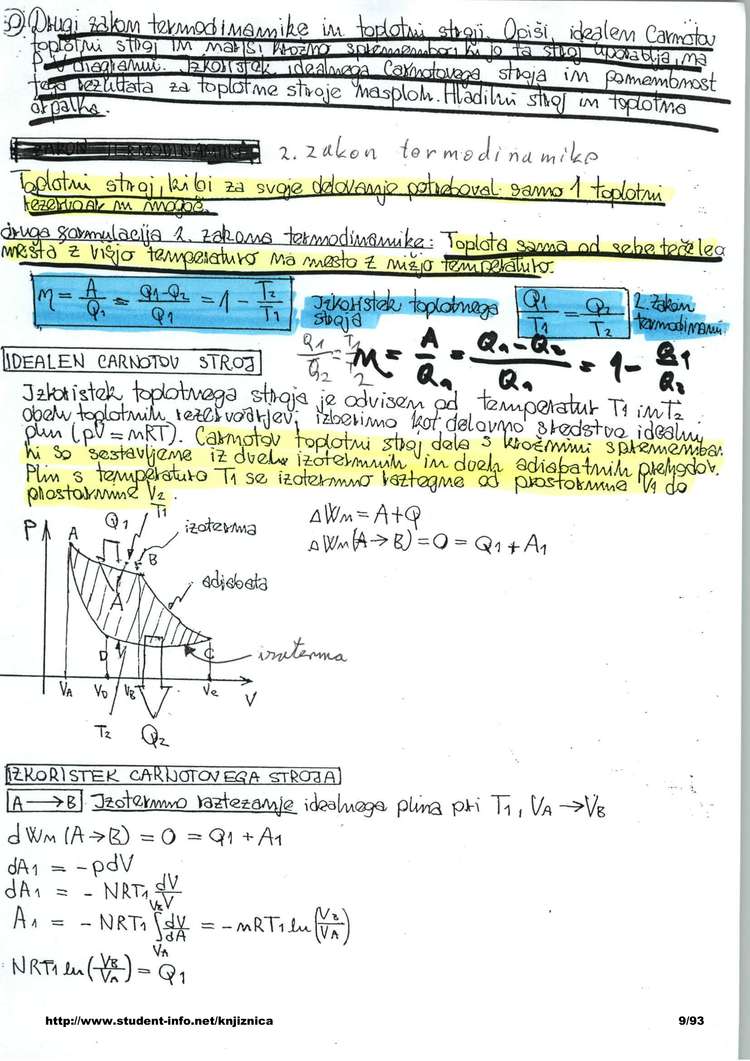 Drugi zakon termodinamike in toplotni stroji. Opiši idealen Carnotov
toplotni stroj in nariši krožno spremembo, ki jo ta stroj uporablja, na
diagramu. Izkoristek idealnega Carnotovega stroja in pomembnost
tega rezultata za toplotne stroje nasploh. Hladilni stroj in toplotna
črpalka.
2. zakon termodinamike
Toplotni stroj, ki bi za svoje delovanje potreboval samo 1 toplotni
rezervoar ni mogoč.
druga formulacija 2. zakona termodinamike: Toplota sama od sebe teče le z
mesta z višjo temperaturo na mesto z nižjo temperaturo.
η = A/Q1 = (Q1-Q2)/Q1 = 1 - T2/T1 Izkoristek toplotnega stroja Q1/T1 = Q2/T2 2. zakon termodinami.
Q1/Q2 = T1/T2
η = A/Q1 = (Q1-Q2)/Q1 = 1 - Q1/Q2
IDEALEN CARNOTOV STROJ
Izkoristek toplotnega stroja je odvisen od temperatur T1 in T2
obeh toplotnih rezervoarjev, izberimo kot delovno sredstvo idealni
plin (pV = nRT). Carnotov toplotni stroj dela s krožnimi spremembar.
ki so sestavljene iz dveh izotermnih in dveh adiabatnih prehodov.
Plin s temperaturo T1 se izotermno raztegne od prostornine V1 do
prostornine V2.
ΔWn = A+Q
ΔWn(A→B) = 0 = Q1 + A1
P
A
Q1
T1
izoterma
B
adiabata
A
D
C
izoterma
VA VD VB VC V
T2
Q2
IZKORISTEK CARNOTOVEGA STROJA
A → B Izotermno raztezanje idealnega plina pri T1, VA → VB
dWn (A→B) = 0 = Q1 + A1
dA1 = -pdV
dA1 = - NRT1 dV/V
A1 = - NRT1 ∫VA VB dV/dA = -nRT1 ln(VB/VA)
NRT1 ln(VB/VA) = Q1
http://www.student-info.net/knjiznica 9/93